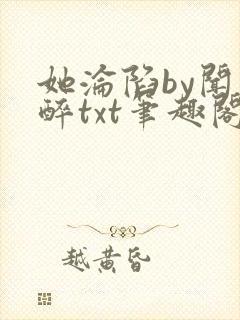 她淪陷by聞
醉txt筆趣閣
越黃昏